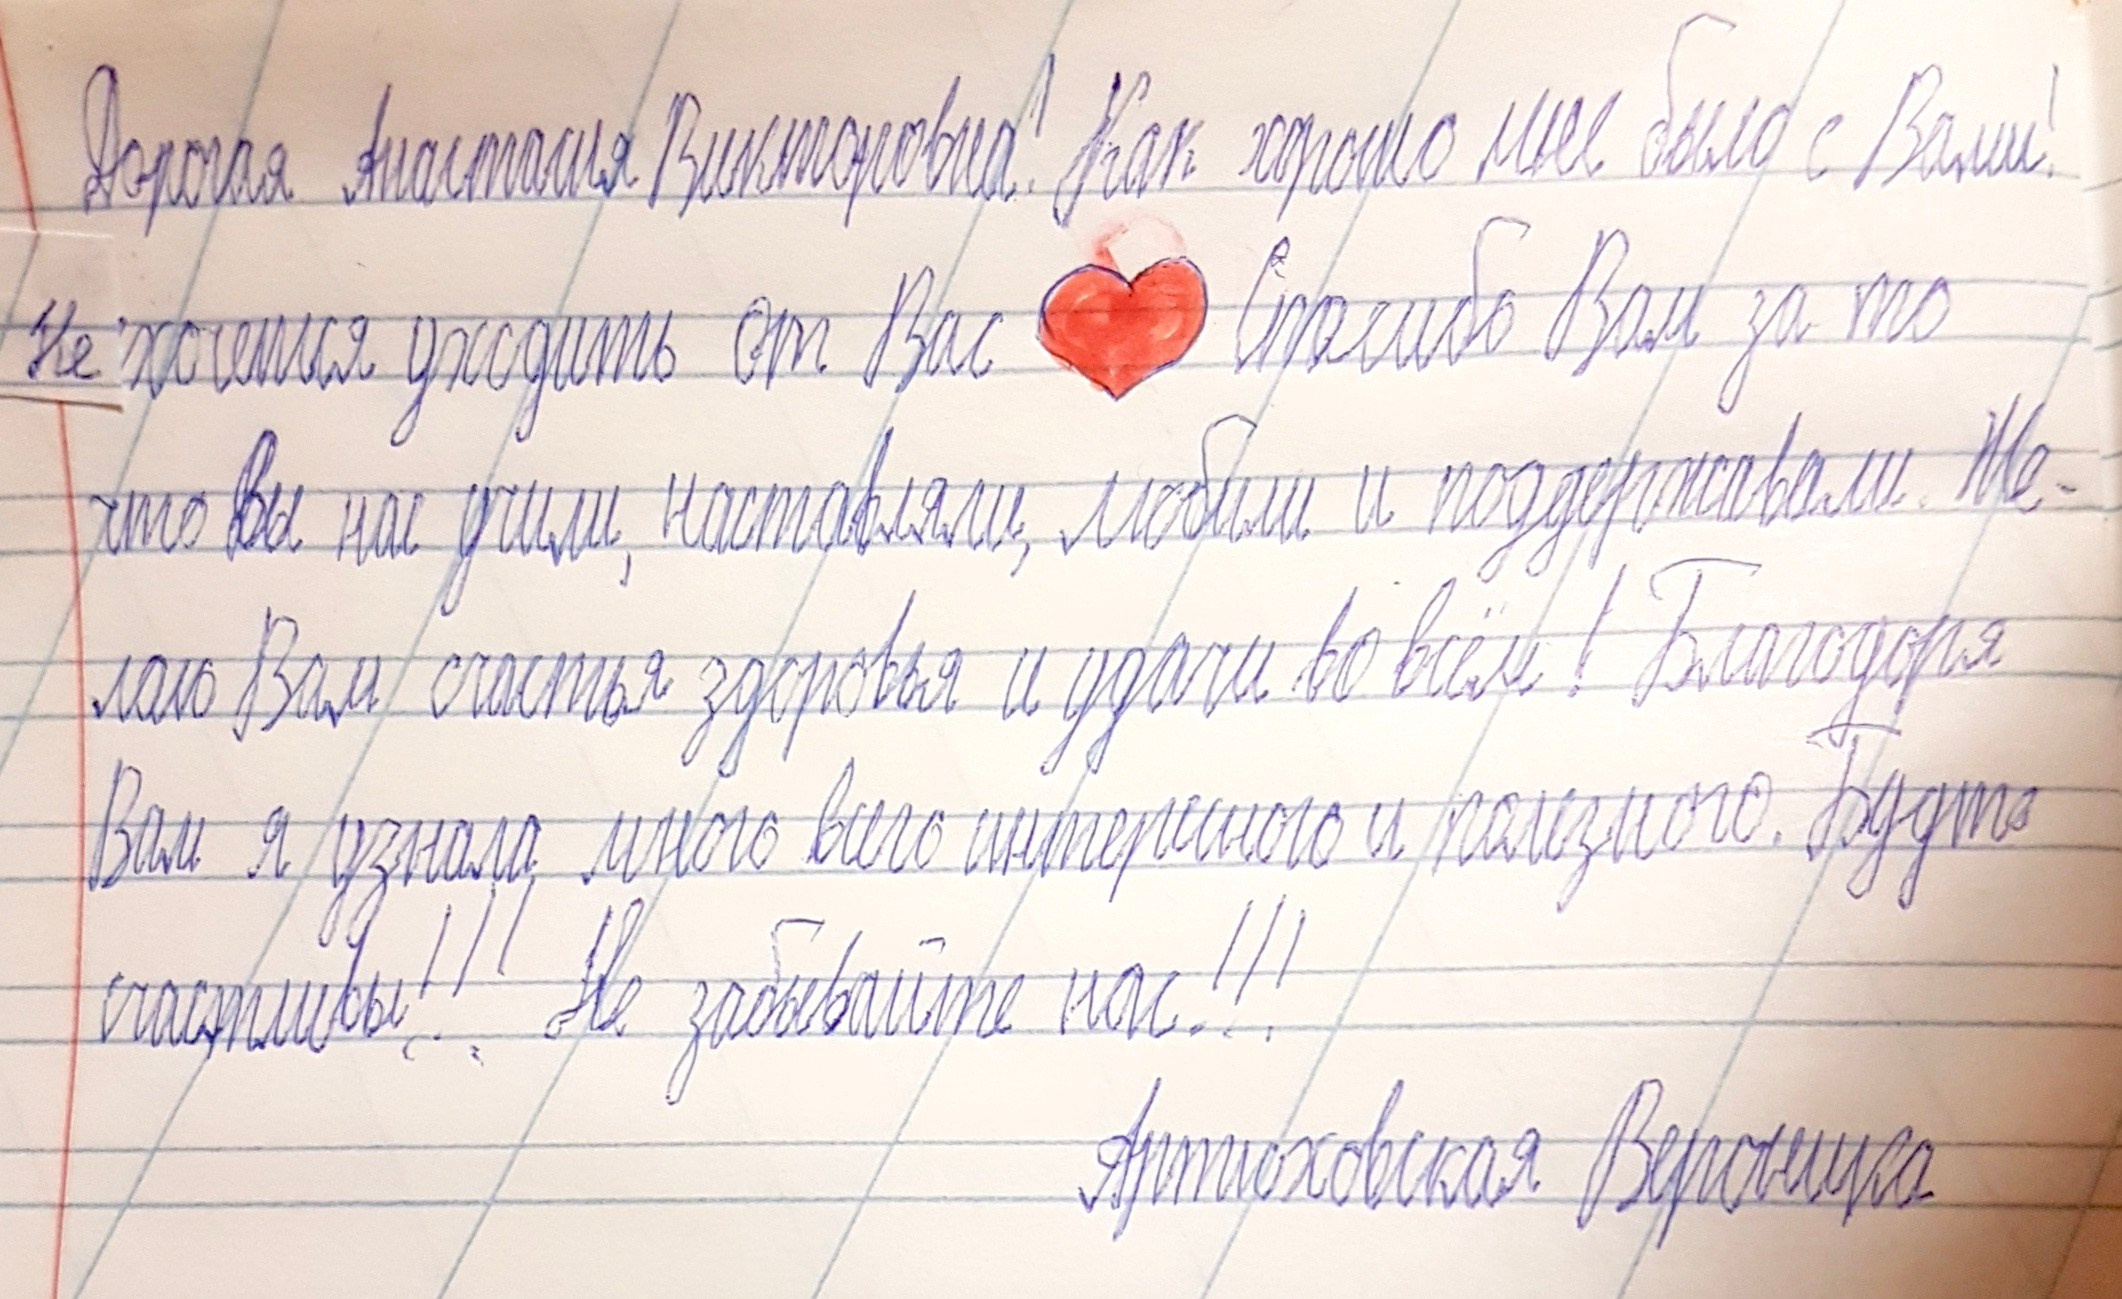 Дорогая Анастасия Викторовна! Как хорошо мне было с Вами!
Не хочется уходить от Вас Спасибо Вам за то
что Вы нас учили, наставляли, любили и поддерживали. Же-
лаю Вам счастья здоровья и удачи во всём! Благодоря
Вам я узнала много всего интересного и полезного. Будте
счастливы!!! Не забывайте нас!!!
Артюховская Вероника